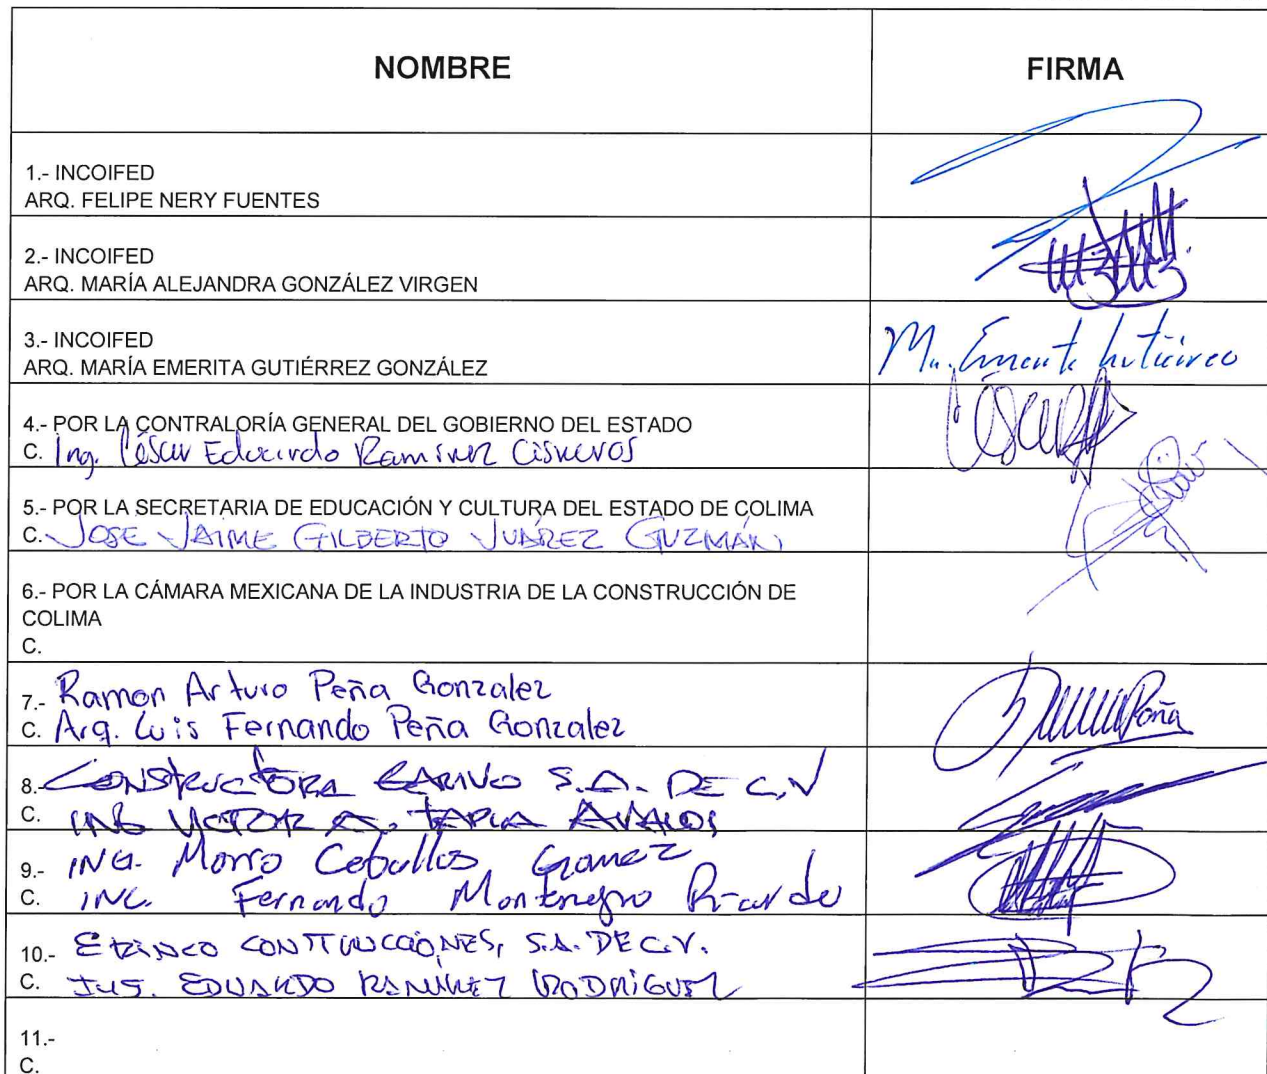 NOMBRE
FIRMA
1.- INCOIFED
ARQ. FELIPE NERY FUENTES
2.- INCOIFED
ARQ. MARÍA ALEJANDRA GONZÁLEZ VIRGEN
3.- INCOIFED
ARQ. MARÍA EMERITA GUTIÉRREZ GONZÁLEZ
4.- POR LA CONTRALORÍA GENERAL DEL GOBIERNO DEL ESTADO
C. Ing. César Eduardo Ramirez Cisneros
5.- POR LA SECRETARIA DE EDUCACIÓN Y CULTURA DEL ESTADO DE COLIMA
C. JOSE JAIME GILBERTO JUÁREZ GUZMÁN
6.- POR LA CÁMARA MEXICANA DE LA INDUSTRIA DE LA CONSTRUCCIÓN DE
COLIMA
C.
7.- Ramon Arturo Peña Gonzalez
C. Arq. Luis Fernando Peña Gonzalez
Peña
8.- CONSTRUCTORA S.A. DE C.V
C. ING VICTOR A. TAPIA AVALOS
9.- ING. Ceballos Gomez
C. ING. Fernando Montenegro
10.- S.A. DE C.V.
C. EDUARDO RAMIREZ RODRIGUEZ
11.-
C.